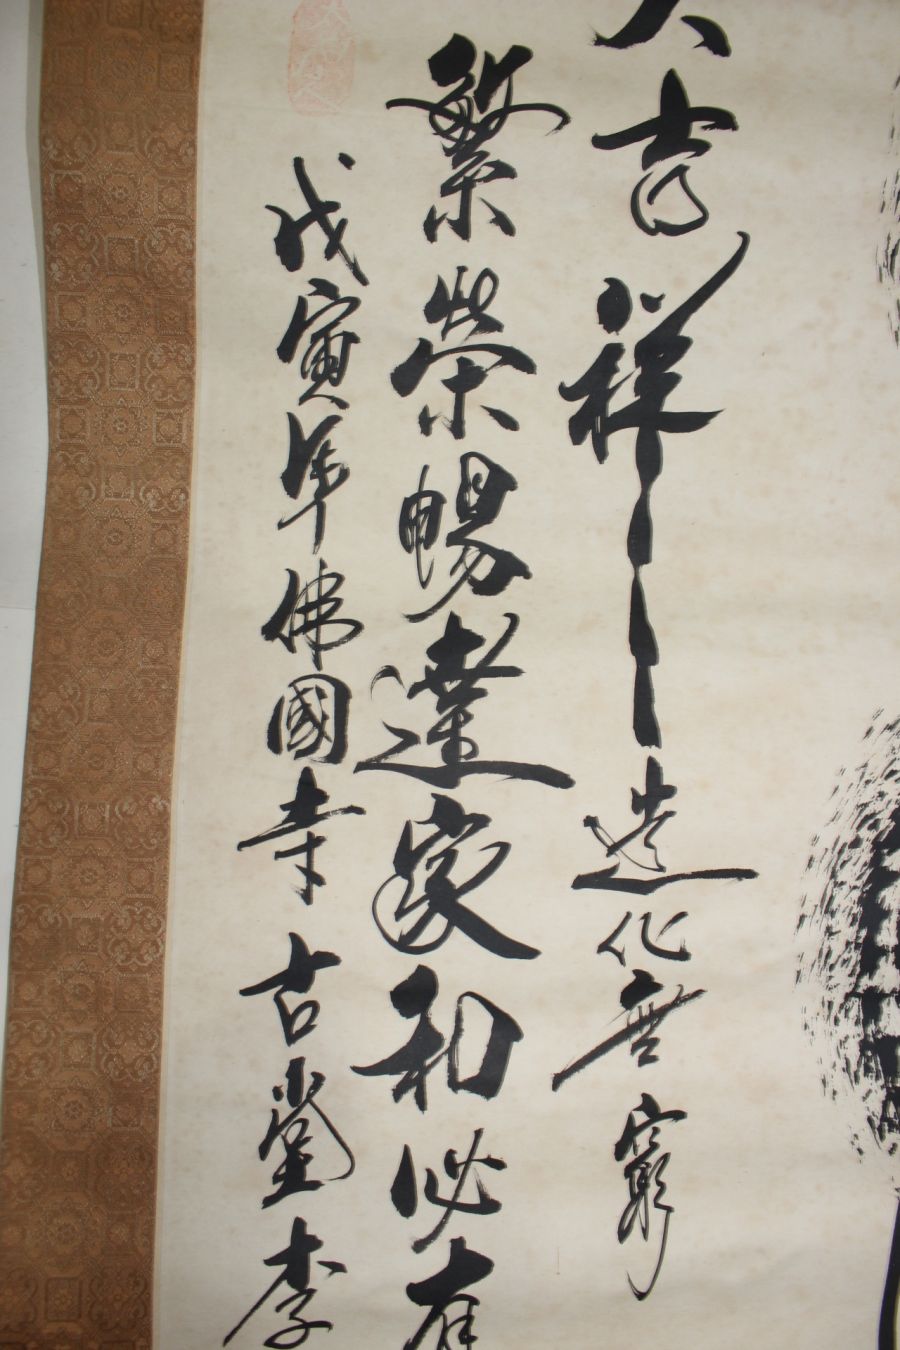 大吉祥 造化無窮
繁榮暢達家和必有
戊寅年佛國寺古堂李